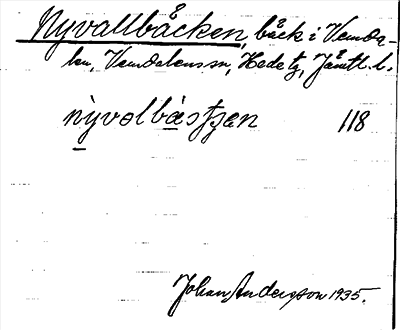 Nyvallbäcken, bäck i Vemda-
len, Vemdalens sn, Hede tg, Jämtl. l.
nỳvalbästʃen 118
Johan Anderson 1935.